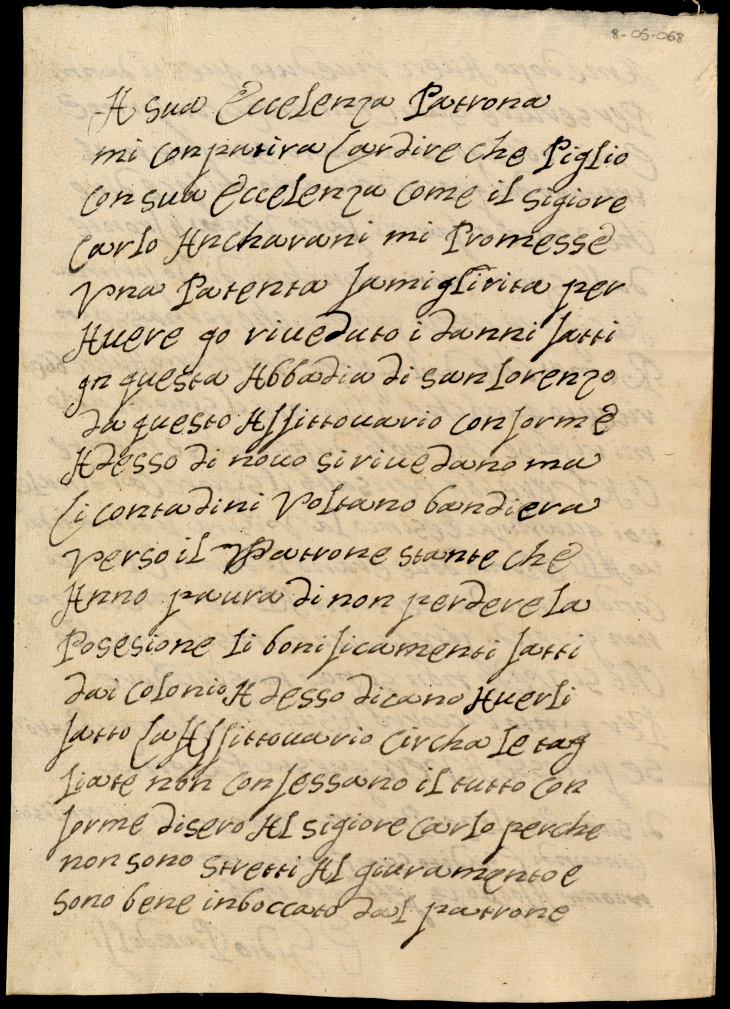 8-05-068
A sua Eccelenza Patrona
mi conpatira Lardire che Piglio
con sua Eccelenza come il sigiore
Carlo Ancharani mi Promesse
Vna Patenta famiglirita per
Auere go riueduto i danni fatti
gn questa Abbadia di san Lorenzo
da questo Affittouario conforme
Adesso di nouo si riuedano ma
Li contadini Voltano bandiera
verso il Patrone stante che
Anno paura di non perdere La
Posesione Li bonificamenti fatti
dai colonio Adesso dicano Auerli
fatto La Affittouario Circha Le tag
Liate non confessano il tutto con
forme disero Al sigiore Carlo perche
non sono stretti Al giuramento e
sono bene inboccato dal patrone